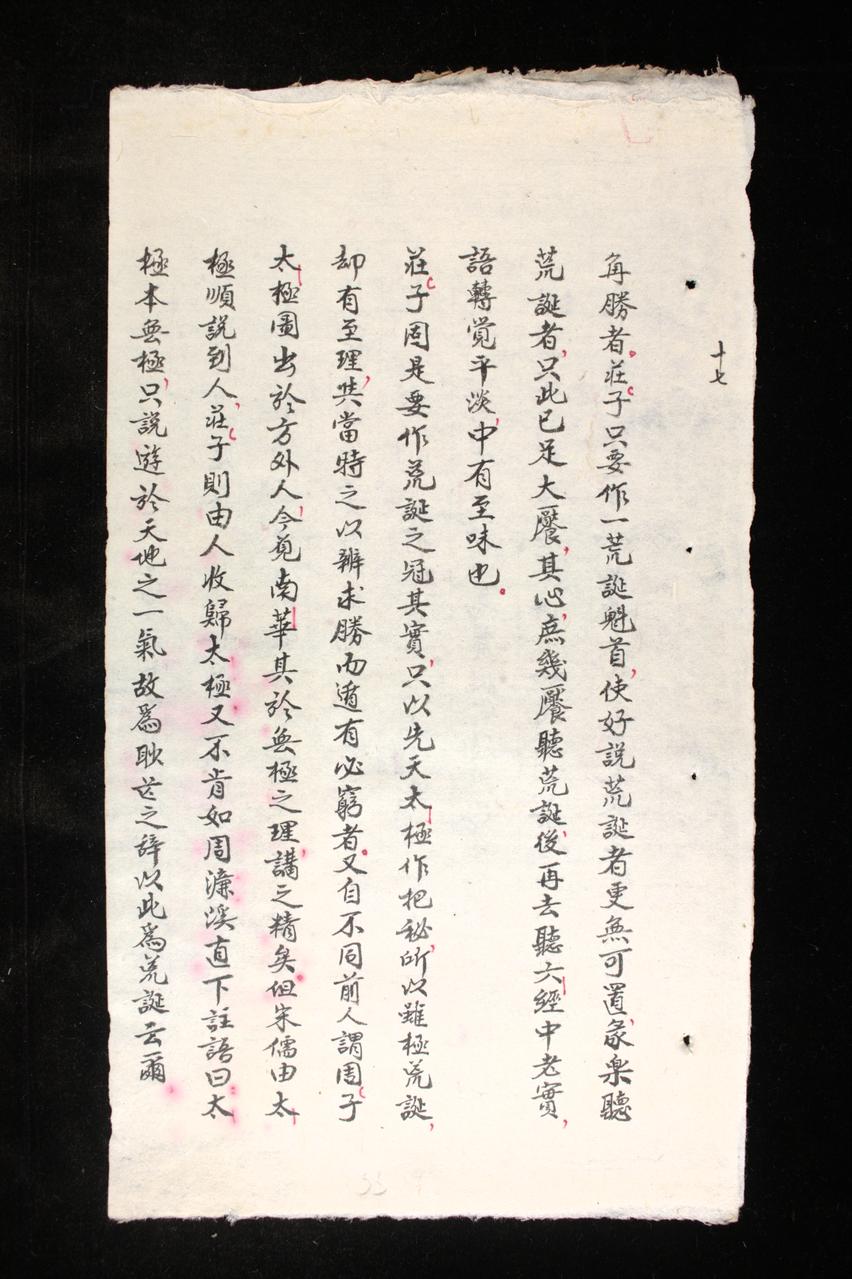 十七
角勝者。莊子只要作一荒誕魁首，使好說荒誕者更無可置喙，樂聽
荒誕者，只此已足大饜，其心，庶幾饜聽荒誕，後再去聽六經中老實，
語轉覺平淡，中有至味也。
莊子固是要作荒誕之冠其實，只以先天太極作把秘，所以雖極荒誕，
却有至理，與當時之以辨求勝而遁有必窮者。又自不同前人謂周子
太極圖出於方外人，今觅南華其於無極之理，講之精矣。但宋儒由太
極順說到人，莊子則由人收歸太極又不肯如周濂溪直下註語曰太
極本無極，只說遊於天地之一氣故爲耿茫之辞以此爲荒誕云爾